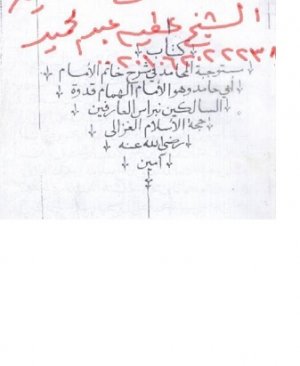 الشيخ عطيه عبد الحميد
كتاب
٠١٠٦٢٠٢٢٢٣٨
مستوجبة المحامد في شرح خاتم الأمام
أبي حامد وهو الأمام الهمام قدوة
السالكين نبراس العارفين
حجة الأسلام الغزالي
رضي الله عنه
آمين